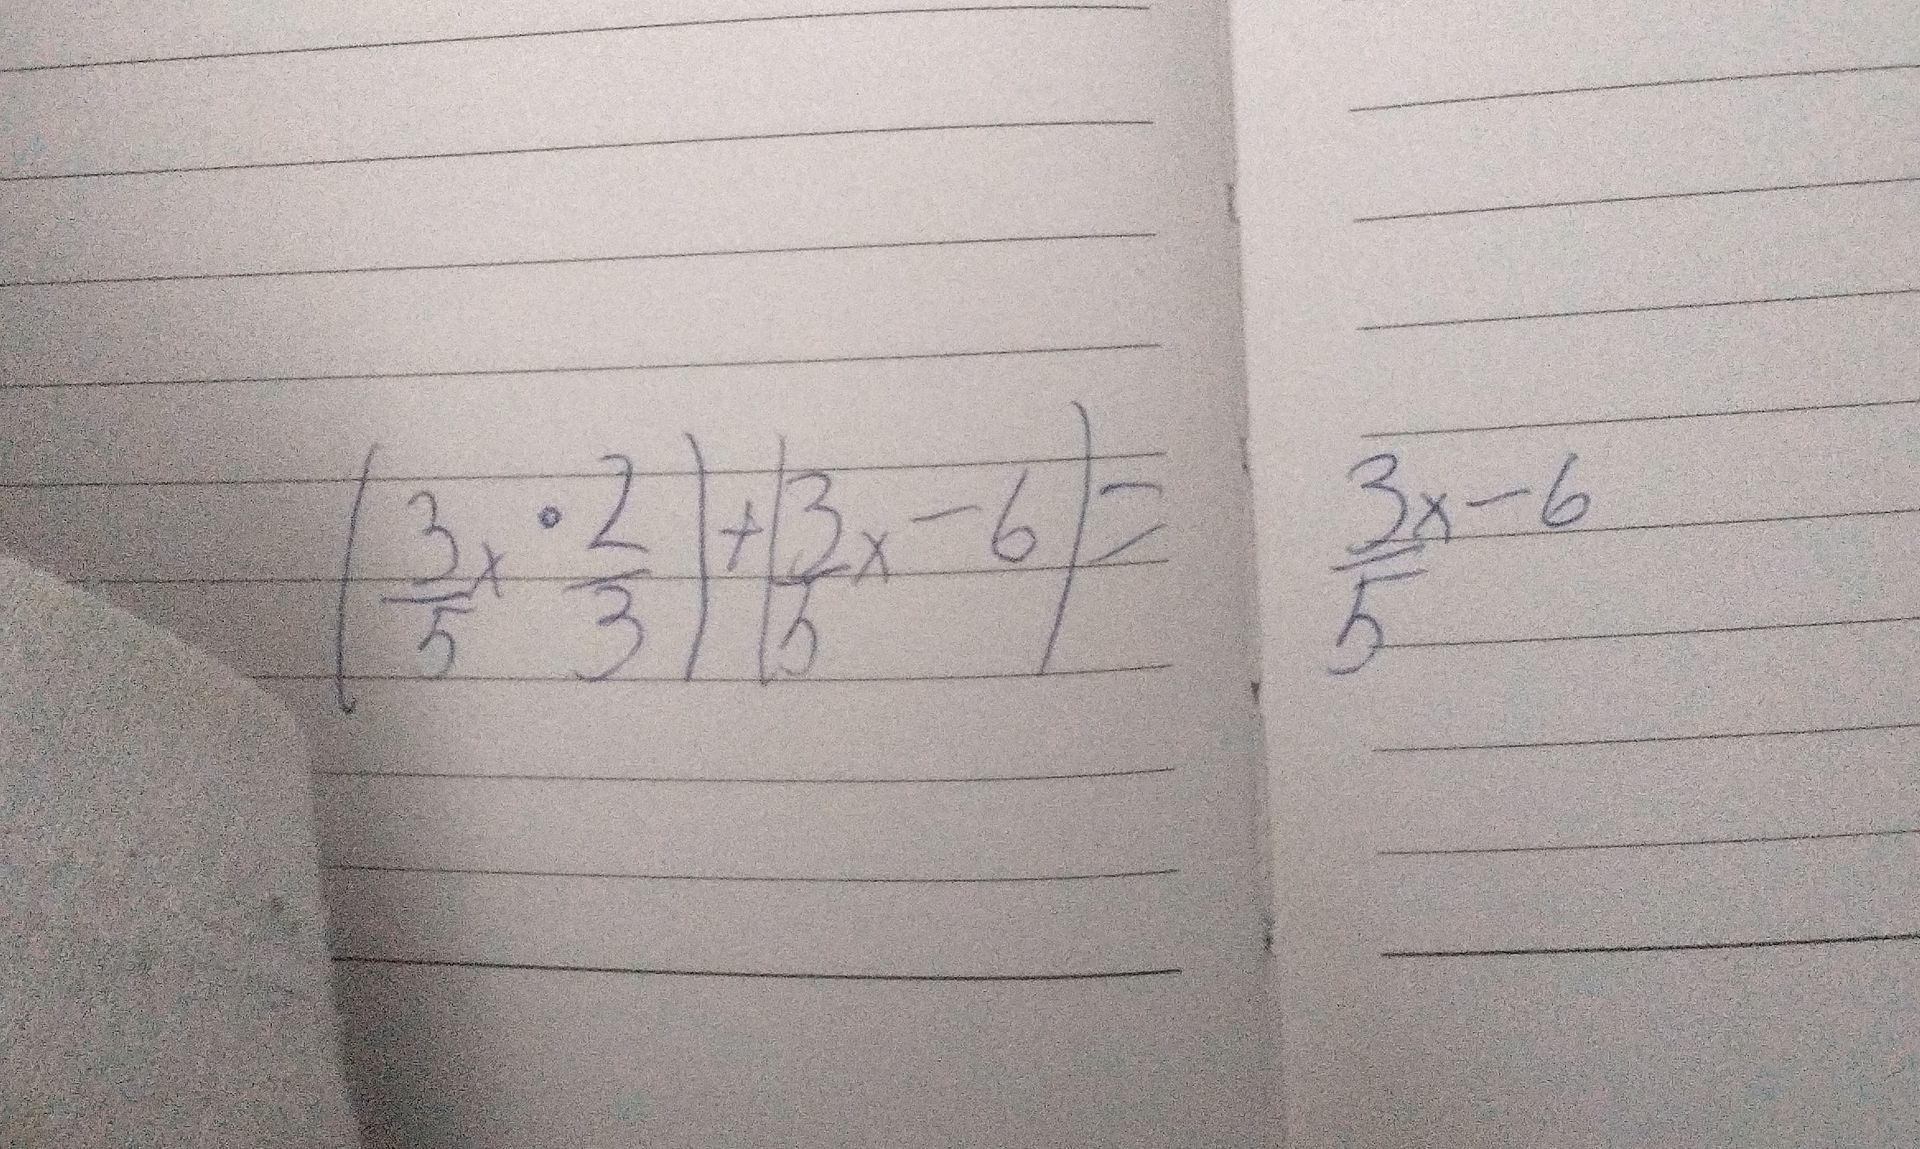 (3/5 x · 2/3) + (3/5 x - 6) = 3/5 x - 6